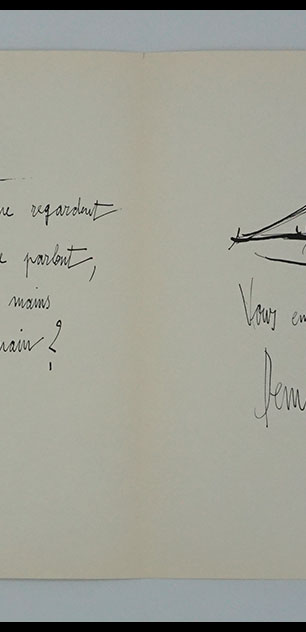 ue regardent
e parlent,
mains
main ?
Vous en
Dem